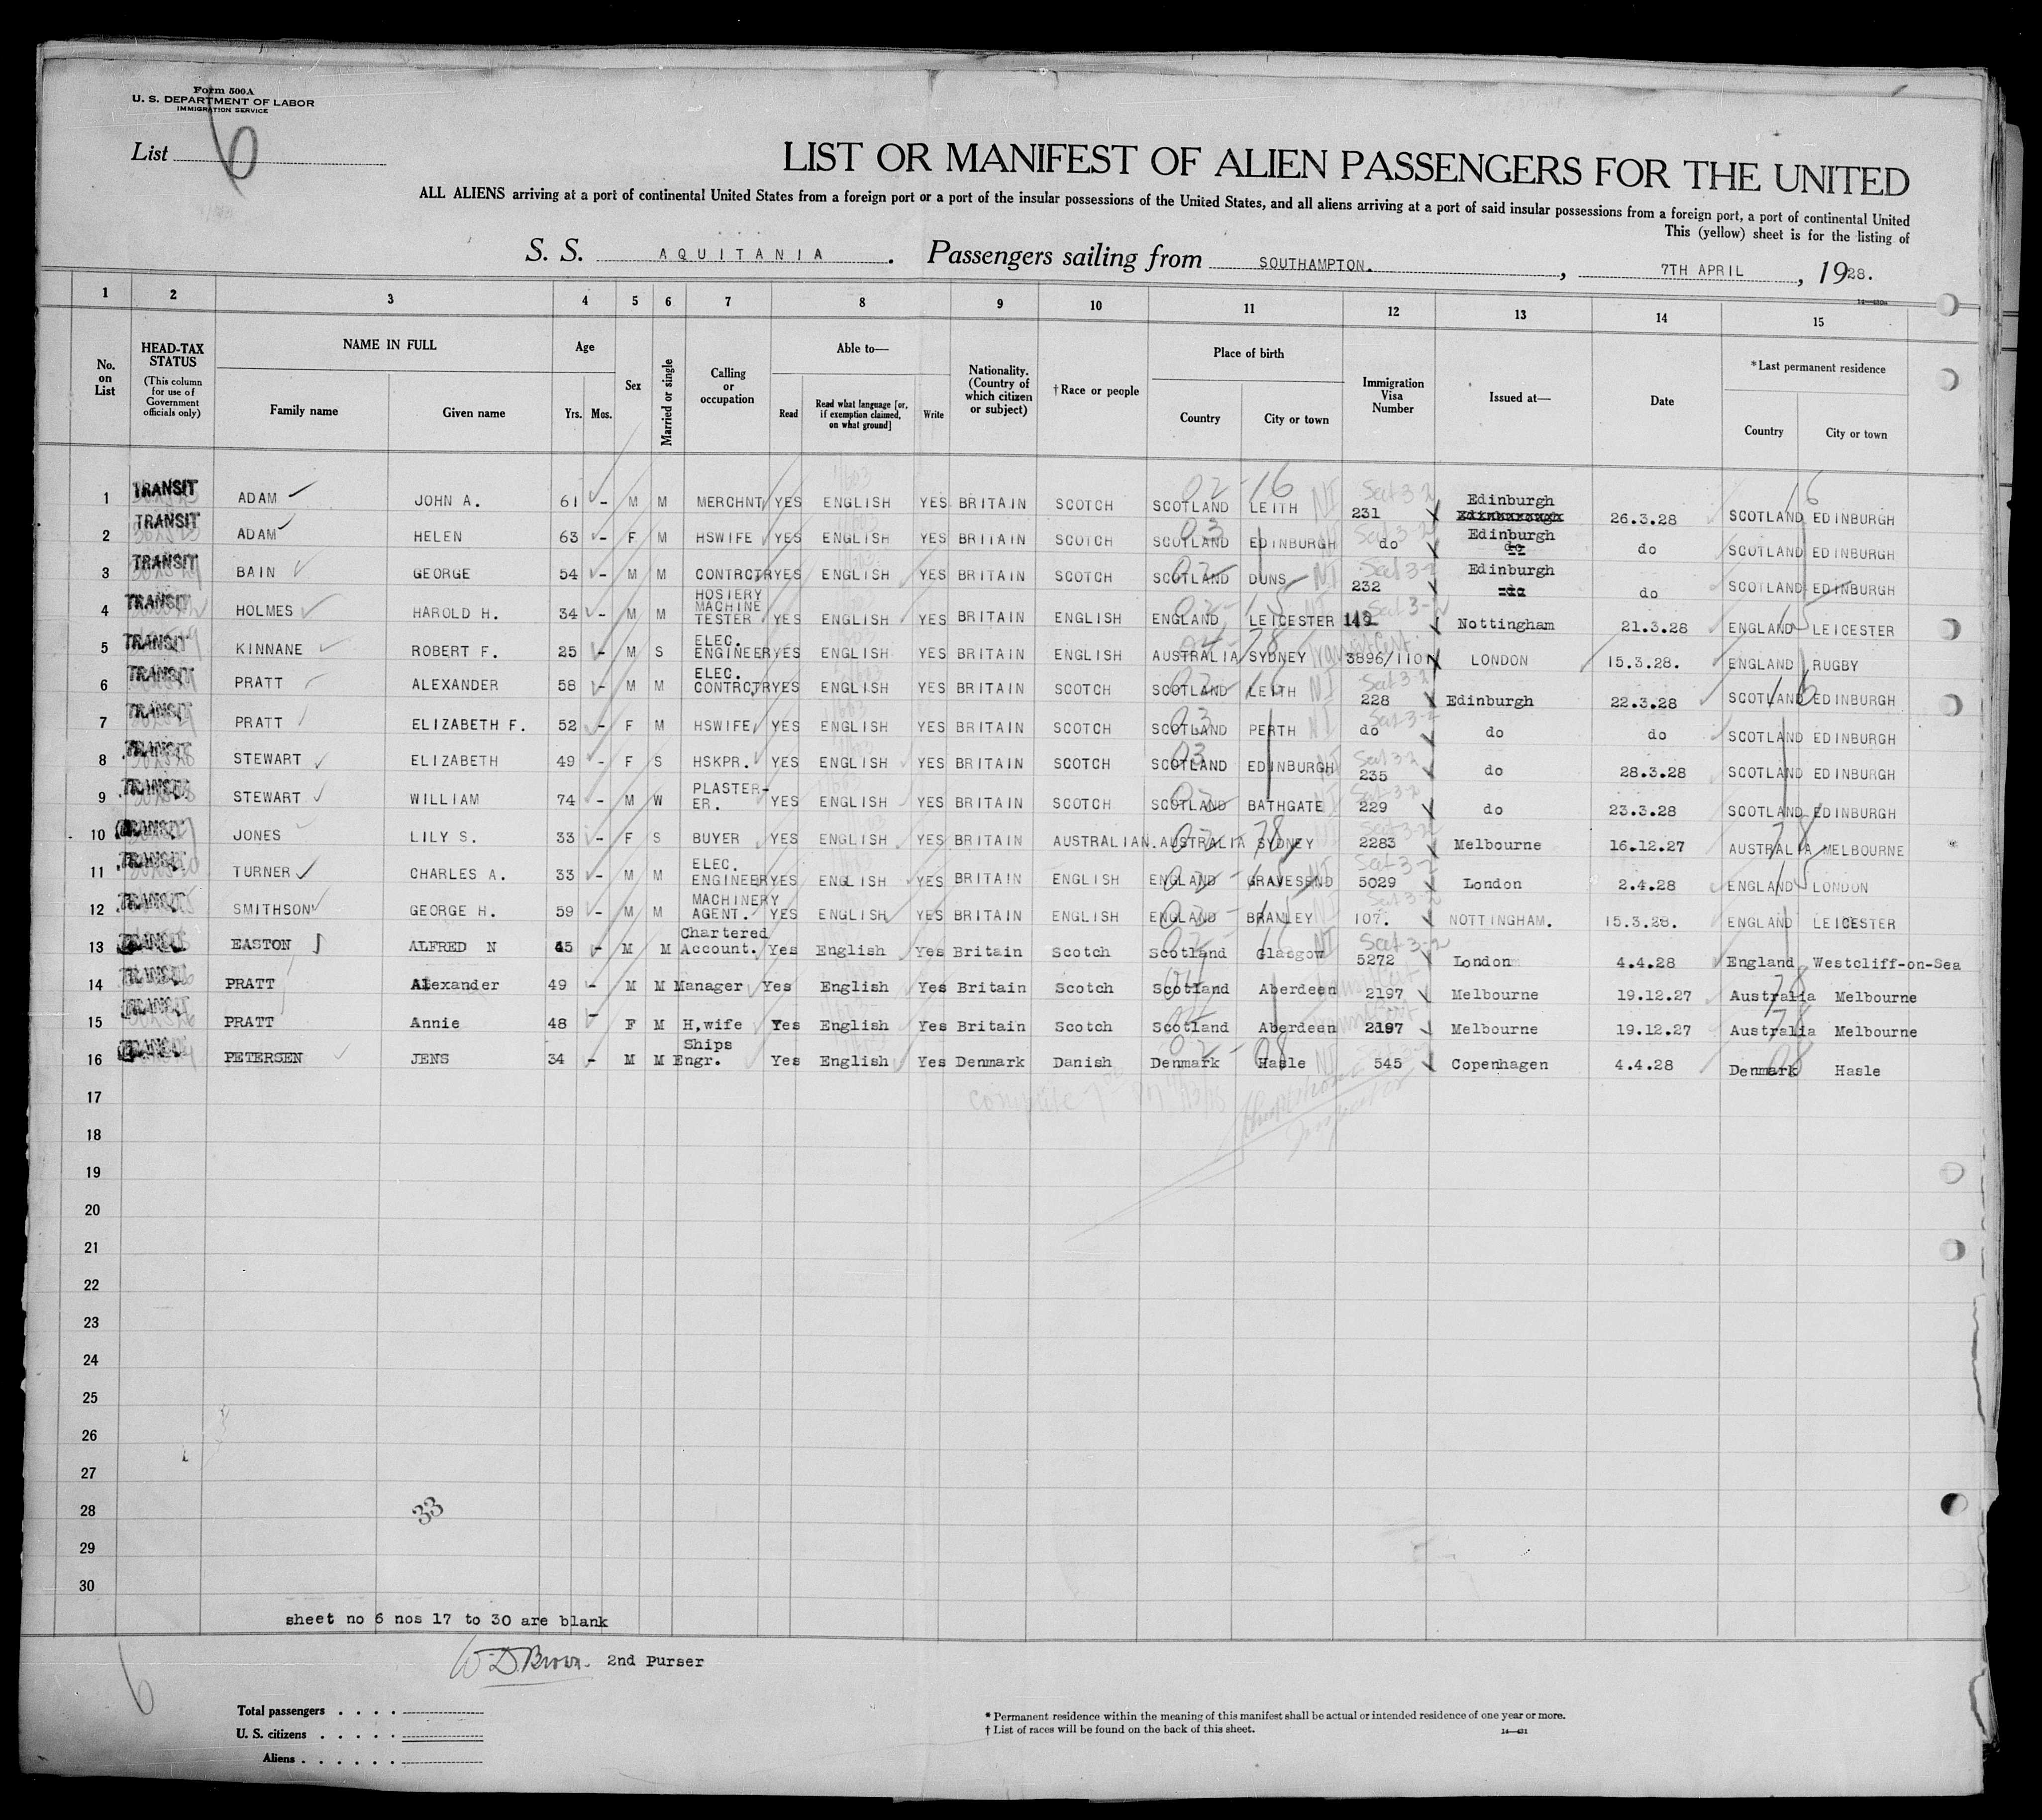 Form 500A
U. S. DEPARTMENT OF LABOR
IMMIGRATION SERVICE
List 6
LIST OR MANIFEST OF ALIEN PASSENGERS FOR THE UNITED
ALL ALIENS arriving at a port of continental United States from a foreign port or a port of the insular possessions of the United States, and all aliens arriving at a port of said insular possessions from a foreign port, a port of continental United
This (yellow) sheet is for the listing of
S. S. AQUITANIA. Passengers sailing from SOUTHAMPTON., 7TH APRIL, 1928.
1 2 3 4 5 6 7 8 9 10 11 12 13 14 15
No. on List
HEAD-TAX STATUS
(This column for use of Government officials only)
NAME IN FULL
Family name Given name
Age
Yrs. Mos.
Sex
Married or single
Calling or occupation
Able to—
Read Read what language [or, if exemption claimed, on what ground] Write
Nationality. (Country of which citizen or subject)
†Race or people
Place of birth
Country City or town
Immigration Visa Number
Issued at—
Date
*Last permanent residence
Country City or town
1 TRANSIT ADAM JOHN A. 61 - M M MERCHNT YES ENGLISH YES BRITAIN SCOTCH SCOTLAND LEITH 231 Edinburgh 26.3.28 SCOTLAND EDINBURGH
2 TRANSIT ADAM HELEN 63 - F M HSWIFE YES ENGLISH YES BRITAIN SCOTCH SCOTLAND EDINBURGH do Edinburgh do do SCOTLAND EDINBURGH
3 TRANSIT BAIN GEORGE 54 - M M CONTRCTR YES ENGLISH YES BRITAIN SCOTCH SCOTLAND DUNS 232 Edinburgh do do SCOTLAND EDINBURGH
4 TRANSIT HOLMES HAROLD H. 34 - M M HOSIERY MACHINE TESTER YES ENGLISH YES BRITAIN ENGLISH ENGLAND LEICESTER Nottingham 21.3.28 ENGLAND LEICESTER
5 TRANSIT KINNANE ROBERT F. 25 - M S ELEC. ENGINEER YES ENGLISH YES BRITAIN ENGLISH AUSTRALIA SYDNEY 3896/110 LONDON 15.3.28. ENGLAND RUGBY
6 TRANSIT PRATT ALEXANDER 58 - M M ELEC. CONTRCTR YES ENGLISH YES BRITAIN SCOTCH SCOTLAND LEITH 228 Edinburgh 22.3.28 SCOTLAND EDINBURGH
7 TRANSIT PRATT ELIZABETH F. 52 - F M HSWIFE YES ENGLISH YES BRITAIN SCOTCH SCOTLAND PERTH do do do SCOTLAND EDINBURGH
8 TRANSIT STEWART ELIZABETH 49 - F S HSKPR. YES ENGLISH YES BRITAIN SCOTCH SCOTLAND EDINBURGH 235 do 28.3.28 SCOTLAND EDINBURGH
9 TRANSIT STEWART WILLIAM 74 - M W PLASTER-ER. YES ENGLISH YES BRITAIN SCOTCH SCOTLAND BATHGATE 229 do 23.3.28 SCOTLAND EDINBURGH
10 TRANSIT JONES LILY S. 33 - F S BUYER YES ENGLISH YES BRITAIN AUSTRALIAN. AUSTRALIA SYDNEY 2283 Melbourne 16.12.27 AUSTRALIA MELBOURNE
11 TRANSIT TURNER CHARLES A. 33 - M M ELEC. ENGINEER YES ENGLISH YES BRITAIN ENGLISH ENGLAND GRAVESEND 5029 London 2.4.28 ENGLAND LONDON
12 TRANSIT SMITHSON GEORGE H. 59 - M M MACHINERY AGENT. YES ENGLISH YES BRITAIN ENGLISH ENGLAND BRAMLEY 107. NOTTINGHAM. 15.3.28. ENGLAND LEICESTER
13 TRANSIT EASTON ALFRED N 45 - M M Chartered Account. Yes English Yes Britain Scotch Scotland Glasgow 5272 London 4.4.28 England Westcliff-on-Sea
14 TRANSIT PRATT Alexander 49 - M M Manager Yes English Yes Britain Scotch Scotland Aberdeen 2197 Melbourne 19.12.27 Australia Melbourne
15 TRANSIT PRATT Annie 48 - F M H,wife Yes English Yes Britain Scotch Scotland Aberdeen 2197 Melbourne 19.12.27 Australia Melbourne
16 TRANSIT PETERSEN JENS 34 - M M Ships Engr. Yes English Yes Denmark Danish Denmark Hasle 545 Copenhagen 4.4.28 Denmark Hasle
17
18
19
20
21
22
23
24
25
26
27
28
29
30
33
sheet no 6 nos 17 to 30 are blank
W D Brown. 2nd Purser
6
Total passengers
U. S. citizens
Aliens
* Permanent residence within the meaning of this manifest shall be actual or intended residence of one year or more.
† List of races will be found on the back of this sheet.
14—431